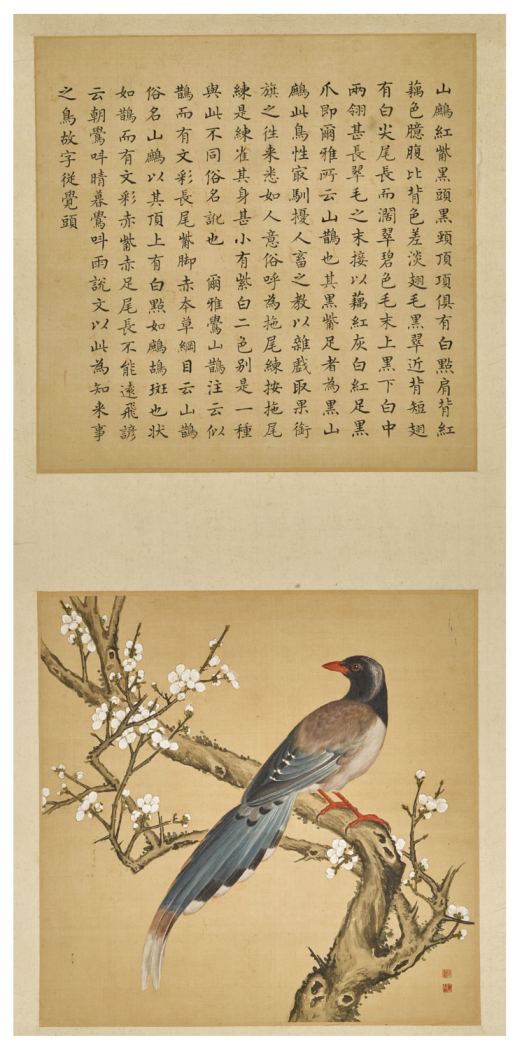 山鷓紅觜黑頭黑頸頂頂俱有白點肩背紅
藕色臆腹比背色差淡翅毛黑翠近背短翅
有白尖尾長而濶翠碧色毛末上黑下白中
兩翎甚長翠毛之末接以藕紅灰白紅足黑
爪即爾雅所云山鵲也其黑觜足者為黑山
鷓此鳥性最馴擾人畜之教以雜戲取果銜
旗之往来悉如人意俗呼為拖尾練按拖尾
練是練雀其身甚小有紫白二色别是一種
與此不同俗名訛也 爾雅鷽山鵲注云似
鵲而有文彩長尾觜脚赤本草綱目云山鵲
俗名山鷓以其頂上有白點如鷓鴣斑也狀
如鵲而有文彩赤觜赤足尾長不能遠飛諺
云朝鷽呌晴暮鷽呌雨說文以此為知来事
之鳥故字從覺頭